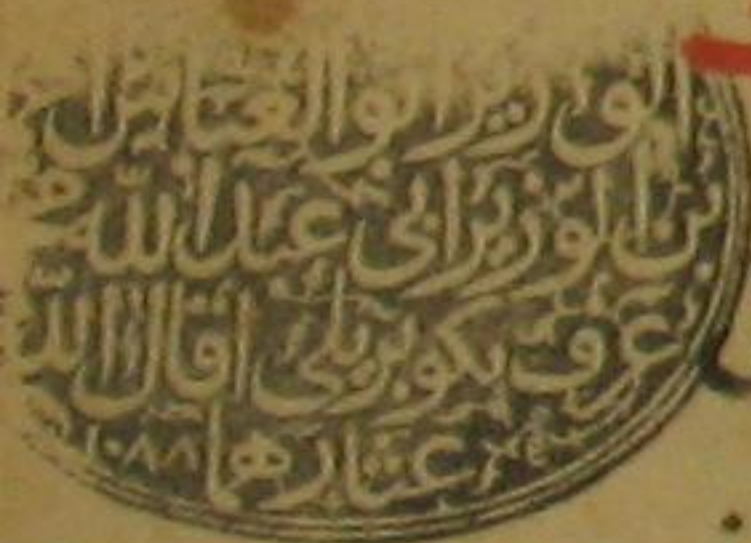 الوزير ابو العباس ا
بن الوزير ابي عبد الله
عرف بكوبريلي اقال الله
عثارهما ١٠٨٨